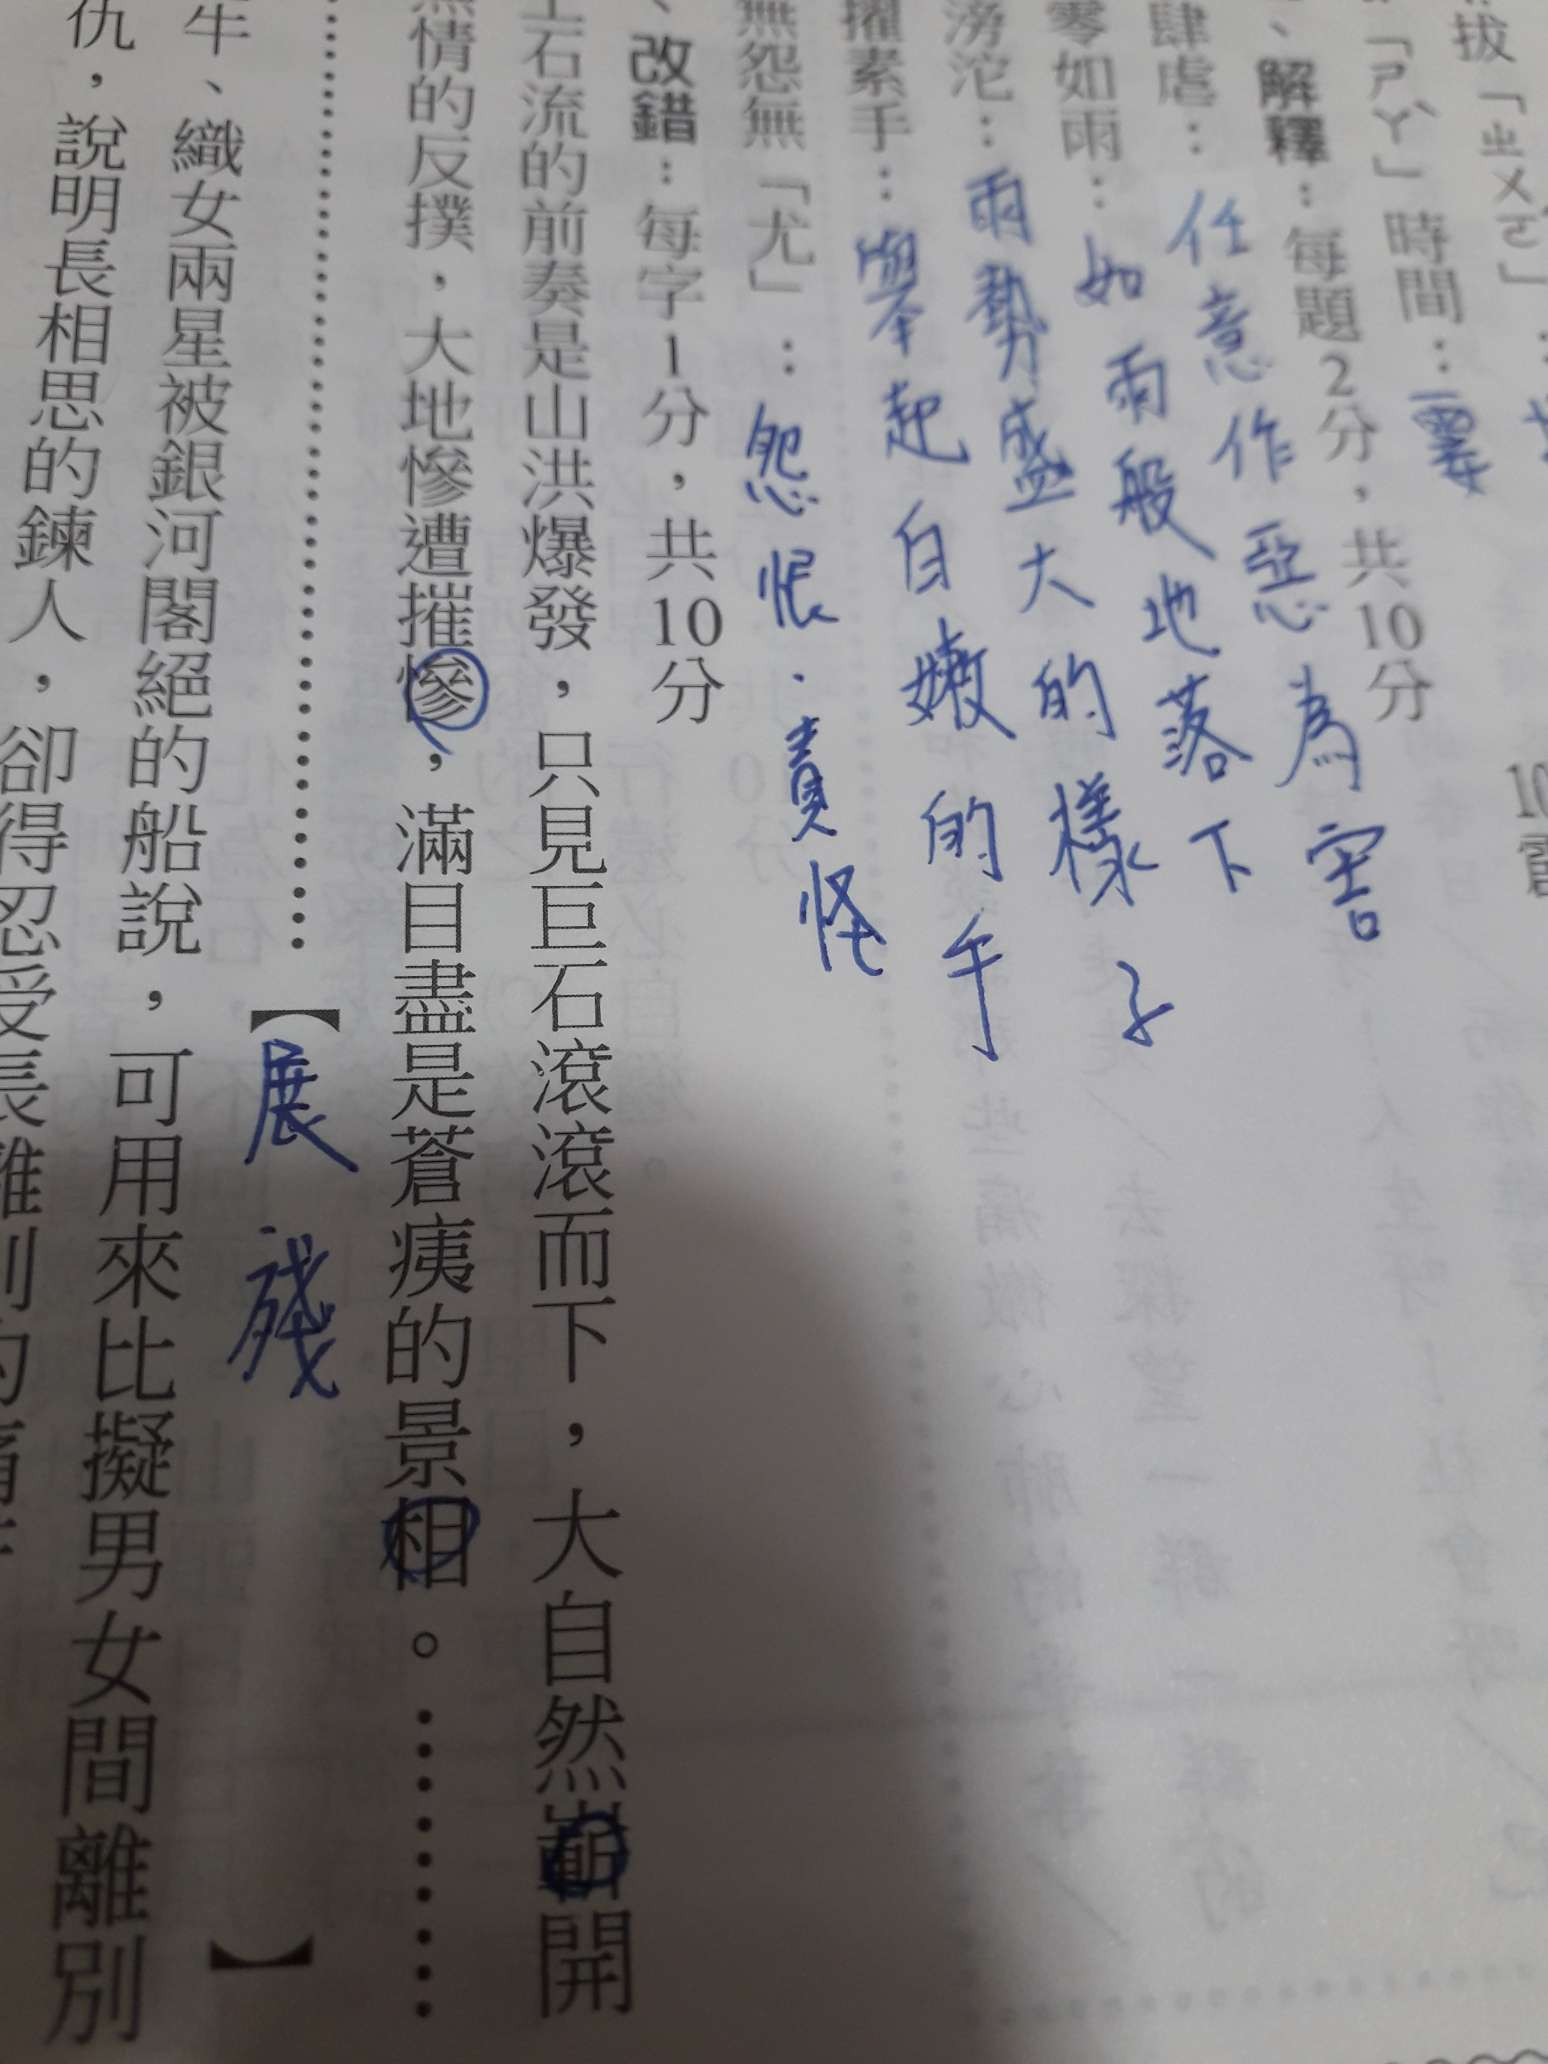 拔「ㄓㄨㄛˊ」：
「ㄕㄚˋ」時間：霎
、解釋：每題2分，共10分
肆虐：任意作惡為害
零如雨：如雨般地落下
滂沱：雨勢盛大的樣子
擢素手：舉起白嫩的手
無怨無「尤」：怨恨．責怪
、改錯：每字1分，共10分
土石流的前奏是山洪爆發，只見巨石滾滾而下，大自然嶄開
無情的反撲，大地慘遭摧慘，滿目盡是蒼痍的景相。
【展 殘 】
牛、織女兩星被銀河閣絕的船說，可用來比擬男女間離別
仇，說明長相思的鍊人，卻得忍受長離別的痛